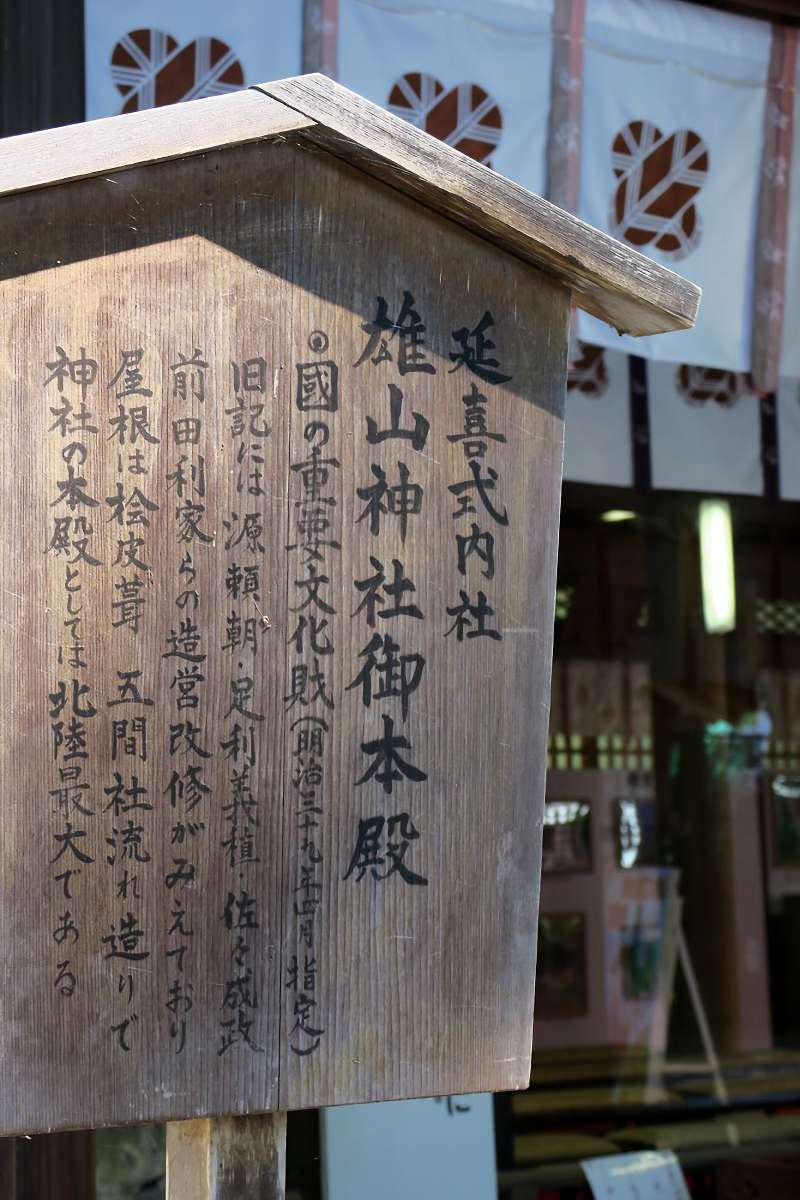 延喜式内社
雄山神社御本殿
◉國の重要文化財(明治三十九年四月指定)
旧記には源頼朝・足利義稙・佐々成政
前田利家らの造営改修がみえており
屋根は桧皮葺 五間社流れ造りで
神社の本殿としては北陸最大である